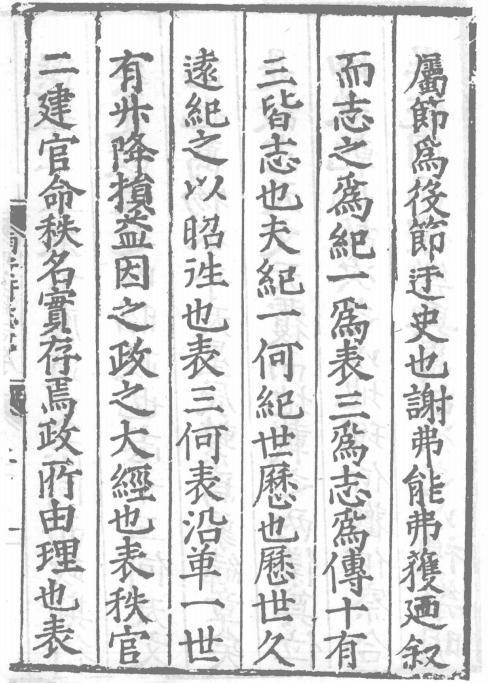 屬節爲後節迂史也謝弗能弗獲廼叙
而志之爲紀一爲表三爲志爲傳十有
三皆志也夫紀一何紀世曆也曆世久
遠紀之以昭徃也表三何表沿革一世
有升降損益因之政之大經也表秩官
二建官命秩名實存焉政所由理也表